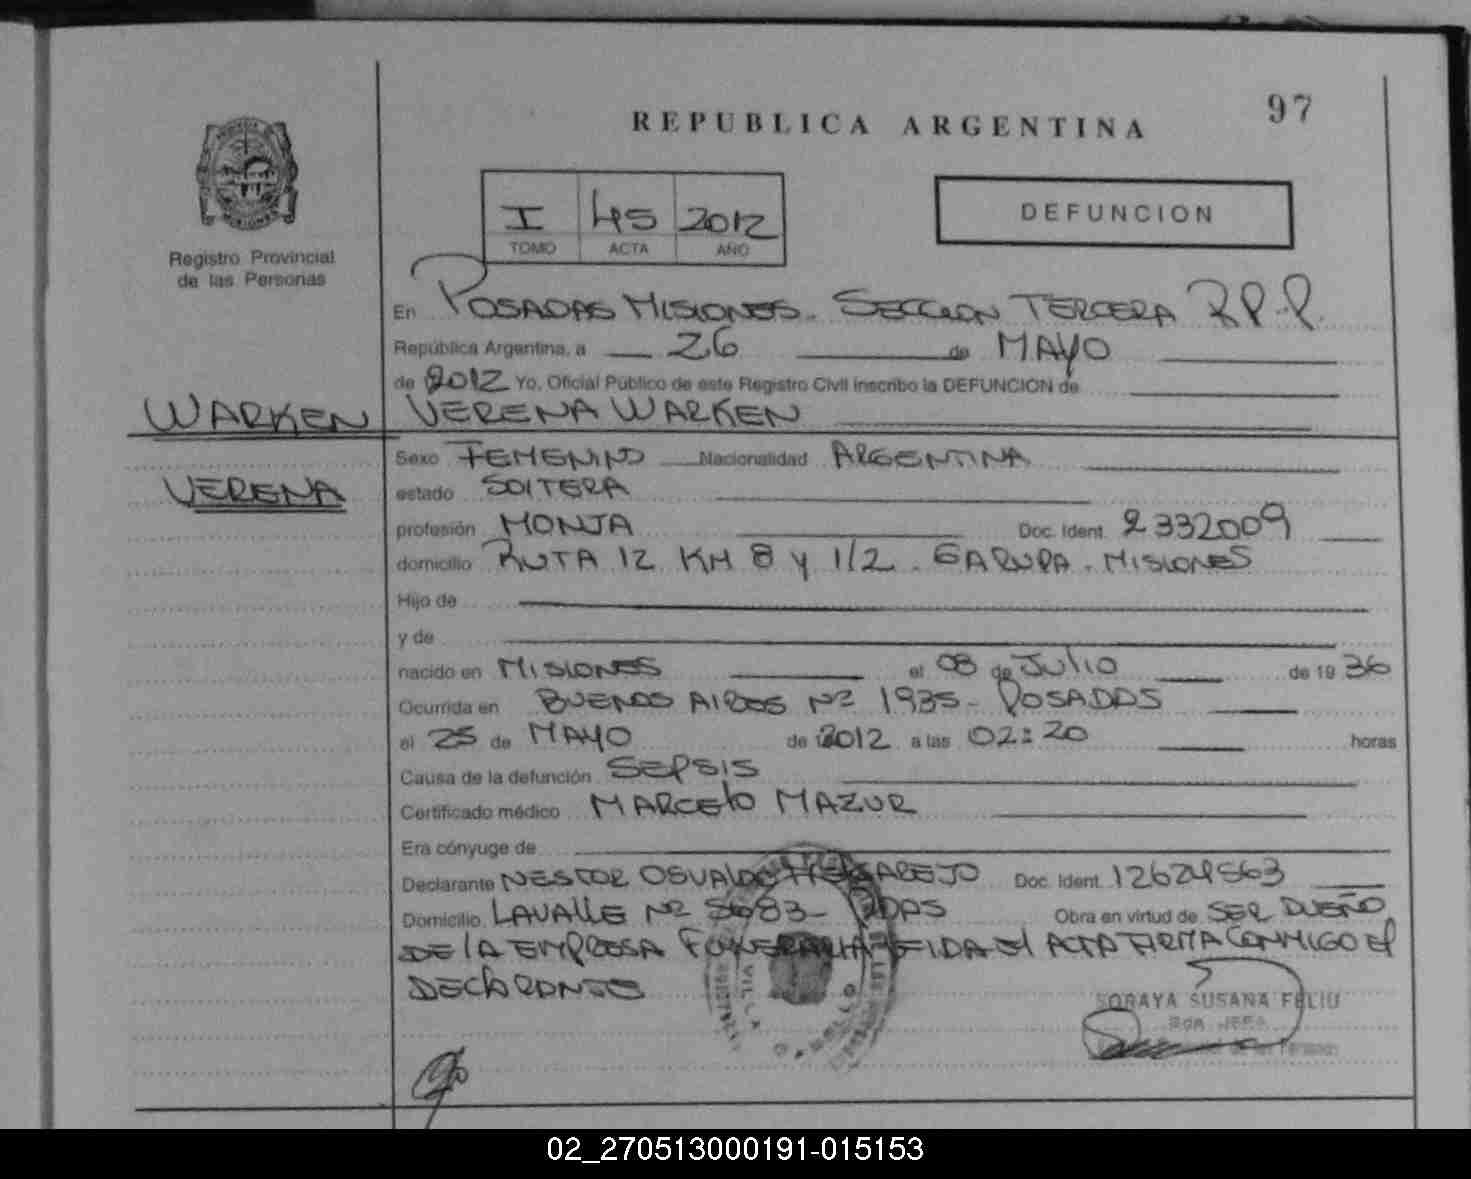 97
REPUBLICA ARGENTINA
I 45 2012
TOMO ACTA AÑO
DEFUNCION
Registro Provincial
de las Personas
En POSADAS MISIONES. SECCION TERCERA R.P.P.
República Argentina, a 26 de MAYO
de 2012 Yo, Oficial Público de este Registro Civil inscribo la DEFUNCION de
WARKEN VERENA WARKEN
Sexo FEMENINO Nacionalidad ARGENTINA
VERENA
estado SOLTERA
profesión MONJA Doc. Ident. 2332009
domicilio RUTA 12 KM 8 y 1/2. GARUPA. MISIONES
Hijo de
y de
nacido en MISIONES el 08 de Julio de 1936
Ocurrida en BUENOS AIRES Nº 1935- POSADAS
el 25 de MAYO de 2012 a las 02:20 horas
Causa de la defunción SEPSIS
Certificado médico MARCELO MAZUR
Era cónyuge de
Declarante NESTOR OSVALDO Doc. Ident. 12624563
Domicilio LAVALLE Nº 5683- PDAS Obra en virtud de SER DUEÑO
DE LA EMPRESA FUNERARIA LEIDA El ACTA FIRMA CONMIGO El
DECLARANTE
SORAYA SUSANA FELIU
VILLA
02_270513000191-015153